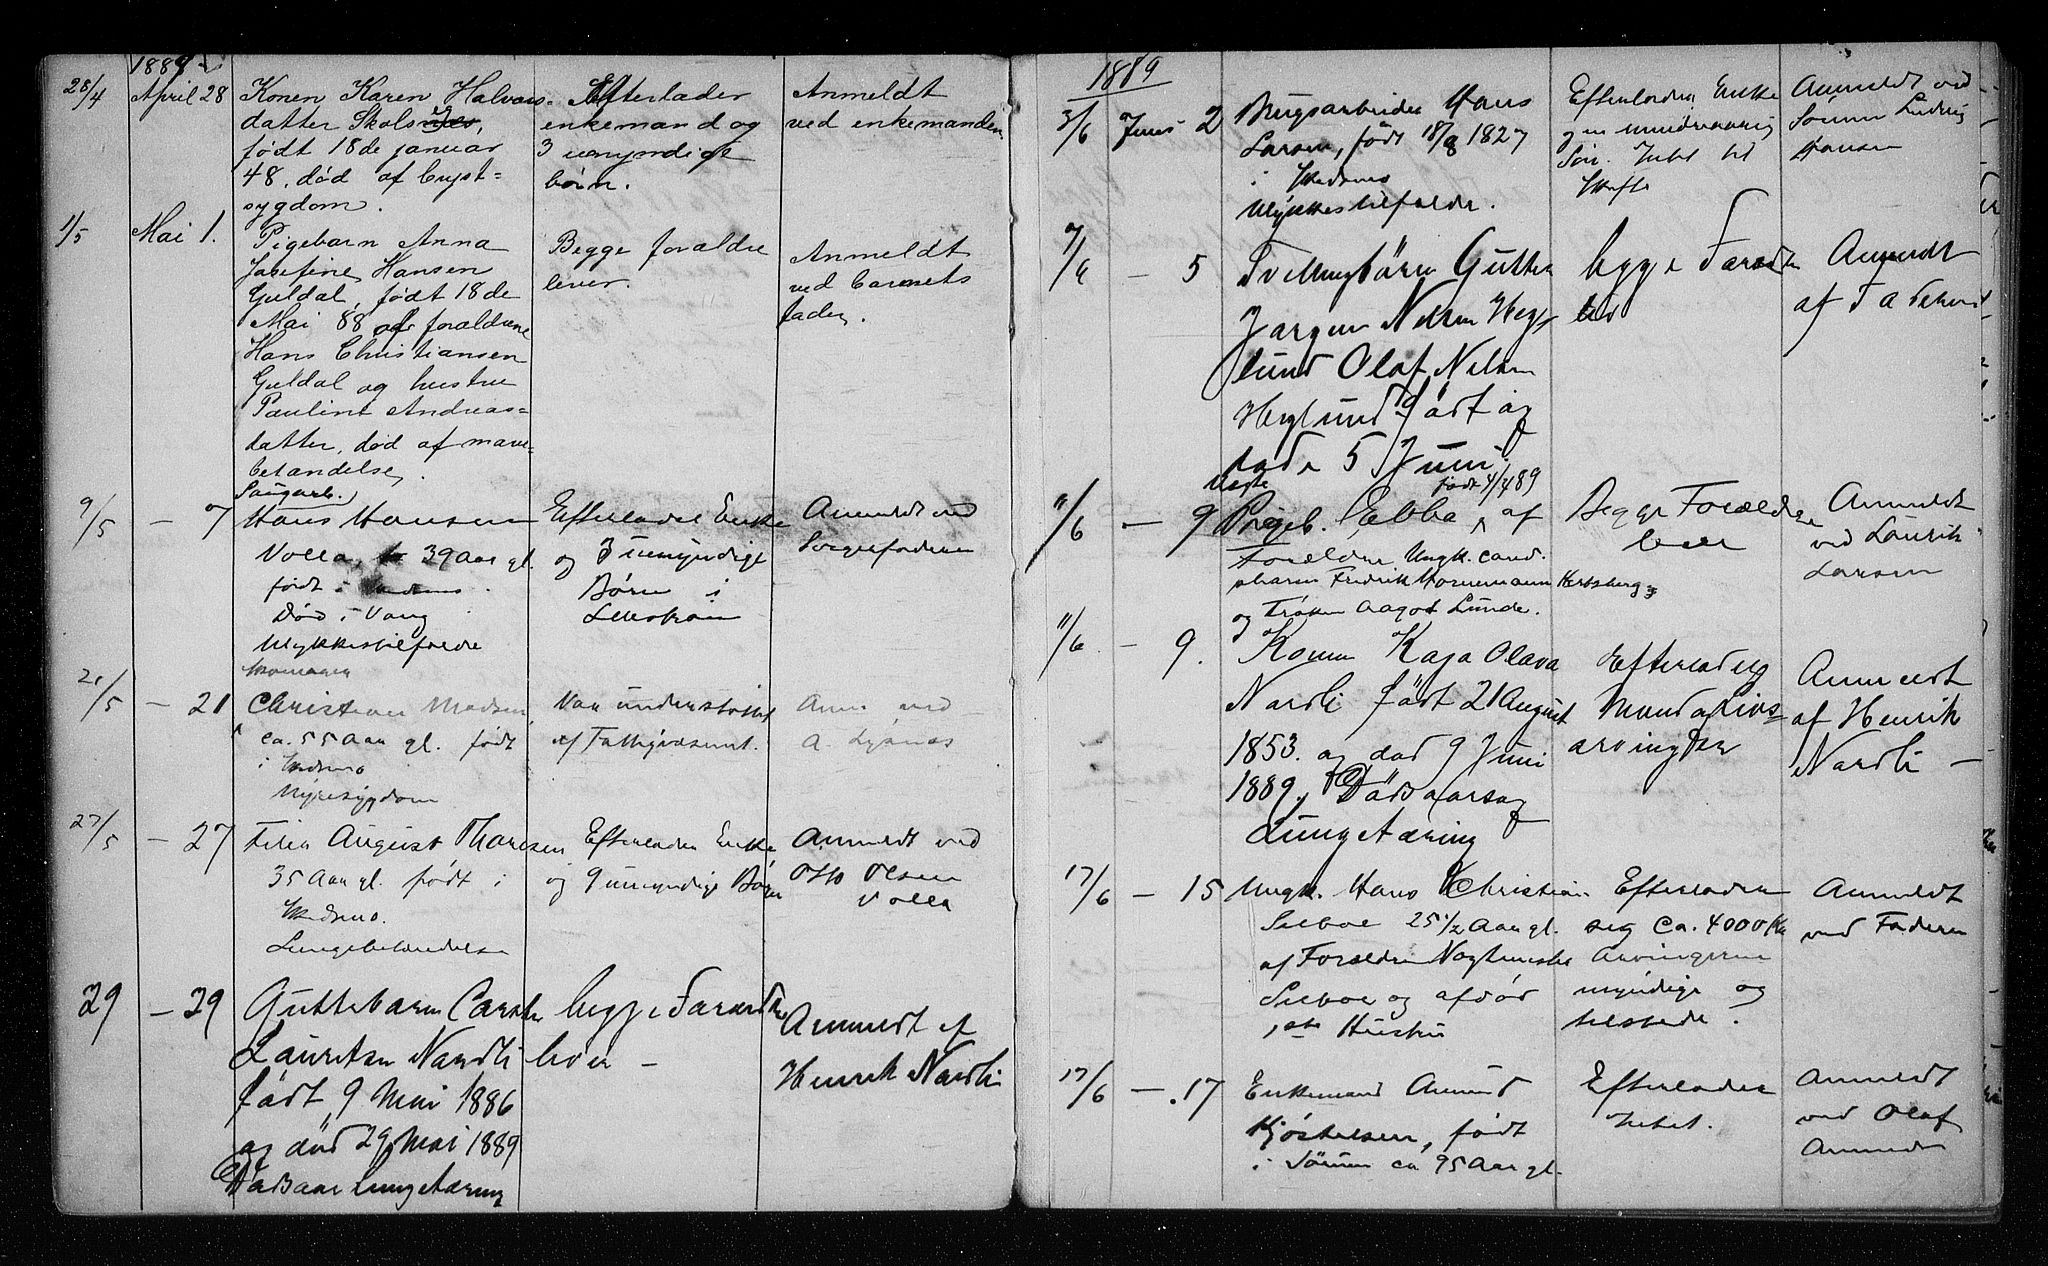 1889
28/4 April 28 Konen Karen Halvors-
datter Skols
født 18de januar
48, død af bryst-
sygdom.
Efterlader
enkemand og
3 uenyndige
børn.
Anmeldt
ved enkemanden
1/5 Mai 1. Pigebarn Anna
Josefine Hansen
Guldal, født 18de
Mai 88 af foraldrene
Hans Christiansen
Guldal og hustru
Pauline Andreas-
datter, død af mave-
betændelse.
Begge foraldre
lever.
Anmeldt
ved barnets
fader.
9/5 — 7 Hans Hansen
Volla, 39 Aar gl.
født i Skedsmo.
Død i Vang
Ulykkestilfælde
Efterlader Enke
og 3 uenyndige
Børn i
Lillestrøm
Anmeldt ved
21/5 — 21 Christian Madsen
ca. 55 Aar gl. født
i Skedsmo
Nyresygdom
Var understøttet
af Fattigvæsenet.
Anm. ved
A.
27/5 — 27 August Thoresen
35 Aar gl. født i
Skedsmo.
Lungebetændelse
Efterlader Enke
og 9 uenyndige Børn
Anmeldt ved
Otto Olsen
Volla
29 — 29 Guttebarn
Lauritsen Nordli
født 9 Mai 1886
og død 29 Mai 1889
Dødsaar Lungetæring
begge Foreldre
lever —
Anmeldt af
Henrik Nordli
1889
3/6 Juni 2 Brugsarbeider Hans
Larsen, født 18/8 1827
i Skedsmo
Ulykkestilfælde.
Efterlader Enke
og en umindreaarig
Søn. Intet til
Skifte
Anmeldt ved
Søren Ludvig
Hansen
7/6 — 5 Tvillingbörn Gutter
Jørgen Nilsen Heg-
lund Olaf Nilsen
Heglund født og
døde 5 Juni.
begge Foreldre
lever
Anmeldt
af Faderen
11/6 — 9 Uægte Pigeb. Ebba, født 4/4 89 af
Forældre Ungk. cand.
pharm Fredrik Hornemann
og Frøken Aagot Lunde.
Begge Forældre
lever
Anmeldt
ved Laurik
Larsen
11/6 — 9. Konen Kaja Olava
Nordli født 21 August
1853. og død 9 Juni
1889. Dödsaarsag
Lungetæring
Efterlader
Mand
arvinger
Anmeldt
af Henrik
Nordli —
17/6 — 15 Ungk. Hans Christian
25 1/2 Aar gl.
af Forældre
og afdød
Hustru
Efterlader
sig Ca. 4000 Kr
Arvingerne
myndige og
tilstede.
Anmeldt
ved Faderen
17/6 — 17 Enkemand Amund
Kjøstelsen, født
i Sørum ca 95 Aar gl.
Efterlader
intet.
Anmeldt
ved Olaf
Amundsen